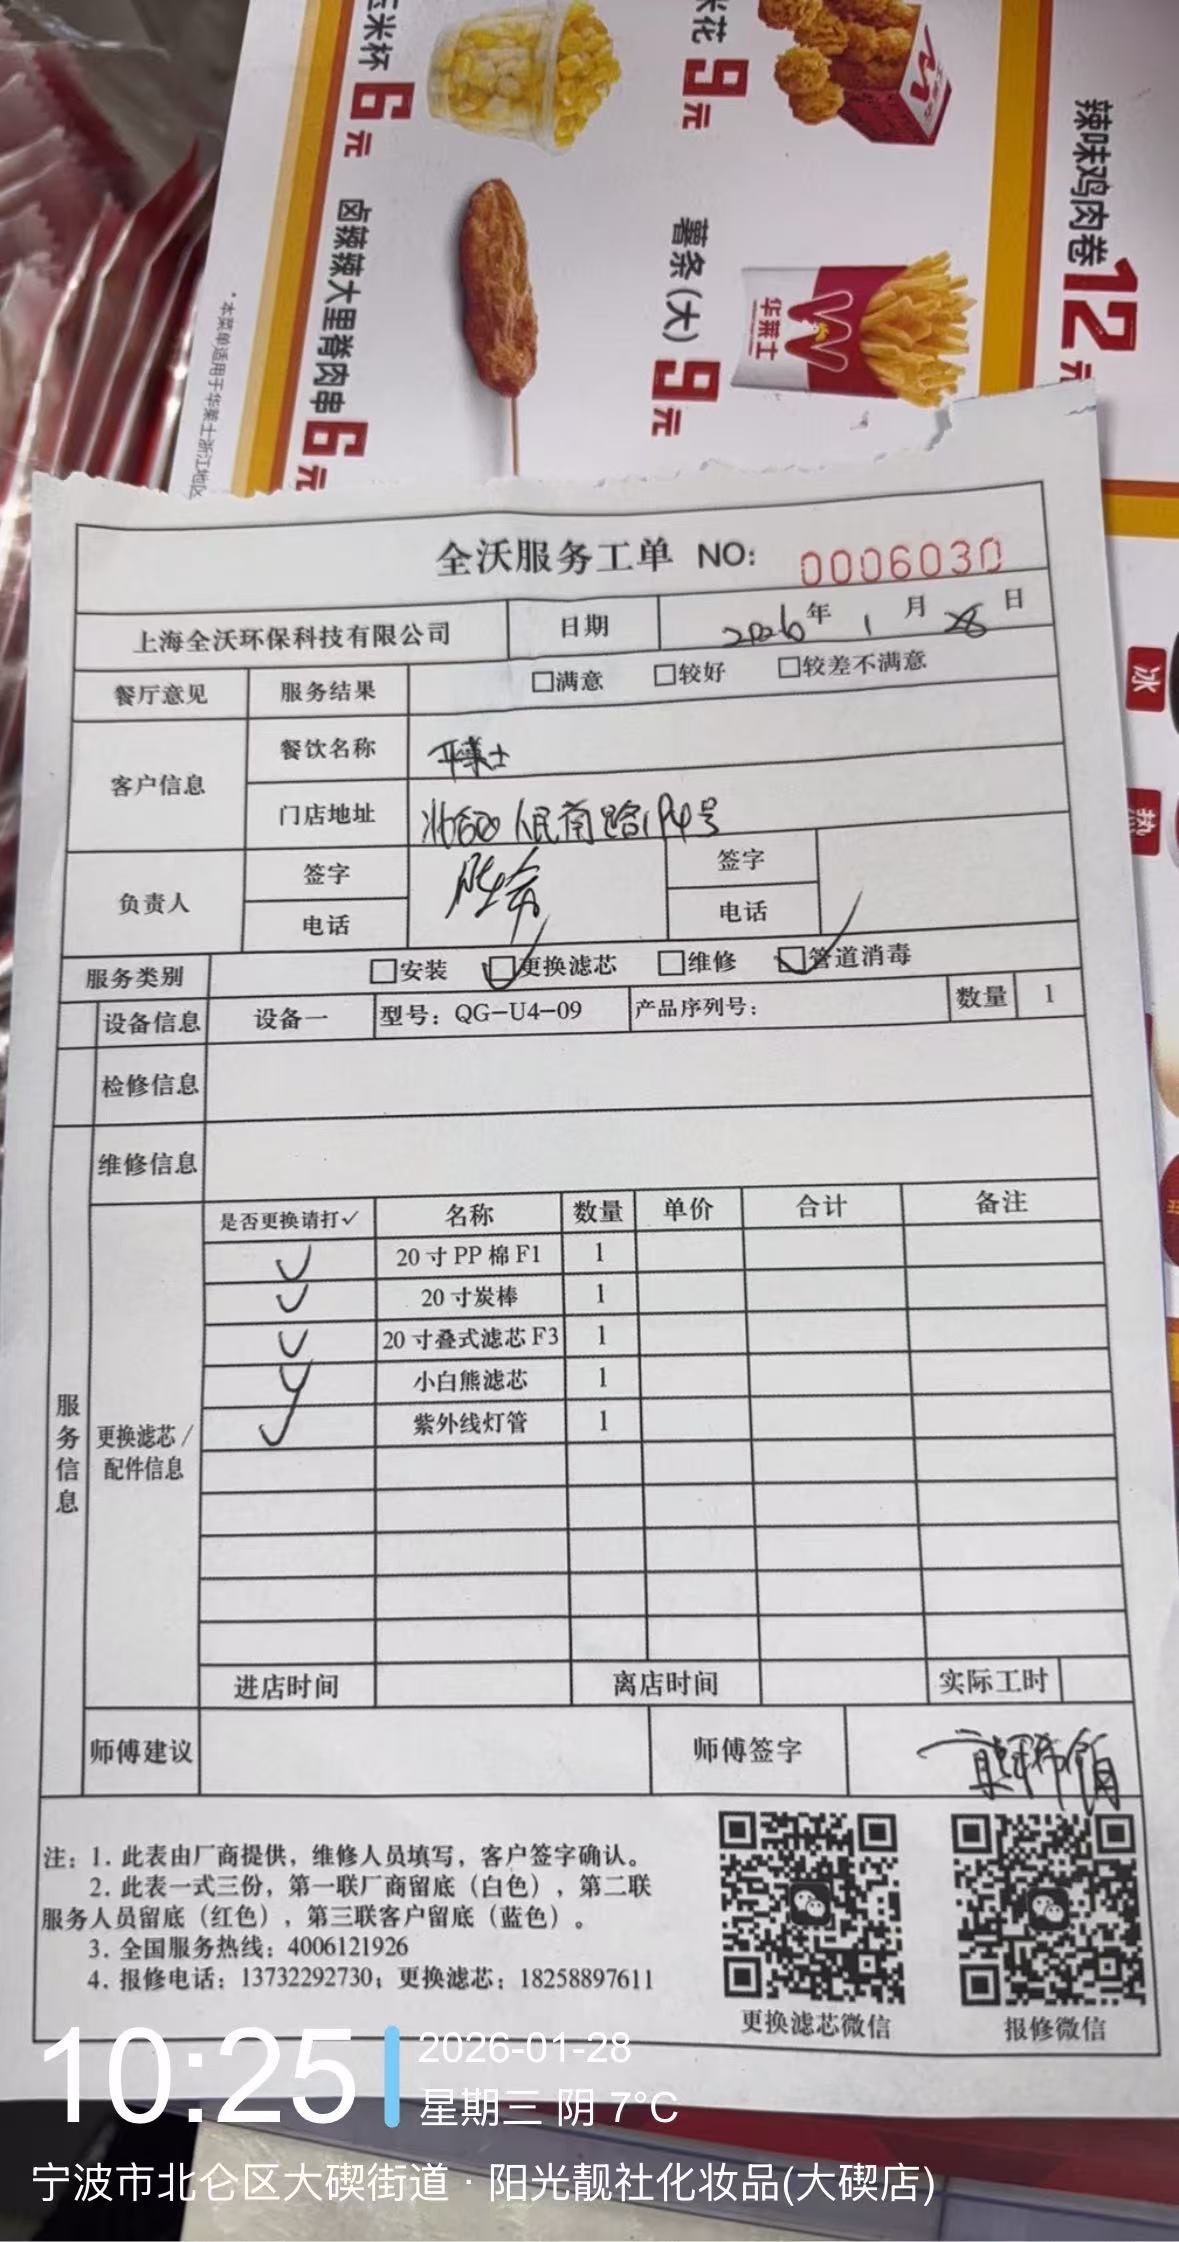 玉米杯 6元
米花 9元
辣味鸡肉卷 12元
卤辣辣大里脊肉串 6元
薯条(大) 9元
华莱士
*本菜单适用于华莱士浙江地区
冰
热
全沃服务工单 NO: 0006030
上海全沃环保科技有限公司 日期 2026年 1月 28日
餐厅意见 服务结果 □满意 □较好 □较差不满意
客户信息 餐饮名称 华莱士
门店地址 人民南路194号
负责人 签字 签字
电话 电话
服务类别 □安装 ☑更换滤芯 □维修 ☑管道消毒
设备信息 设备一 型号：QG-U4-09 产品序列号： 数量 1
检修信息
维修信息
服务信息
更换滤芯/配件信息
是否更换请打✓ 名称 数量 单价 合计 备注
✓ 20寸PP棉F1 1
✓ 20寸炭棒 1
✓ 20寸叠式滤芯F3 1
✓ 小白熊滤芯 1
✓ 紫外线灯管 1
进店时间 离店时间 实际工时
师傅建议 师傅签字
注：1. 此表由厂商提供，维修人员填写，客户签字确认。
2. 此表一式三份，第一联厂商留底（白色），第二联
服务人员留底（红色），第三联客户留底（蓝色）。
3. 全国服务热线：4006121926
4. 报修电话：13732292730；更换滤芯：18258897611
更换滤芯微信 报修微信
10:25
2026-01-28
星期三 阴 7°C
宁波市北仑区大碶街道 · 阳光靓社化妆品(大碶店)